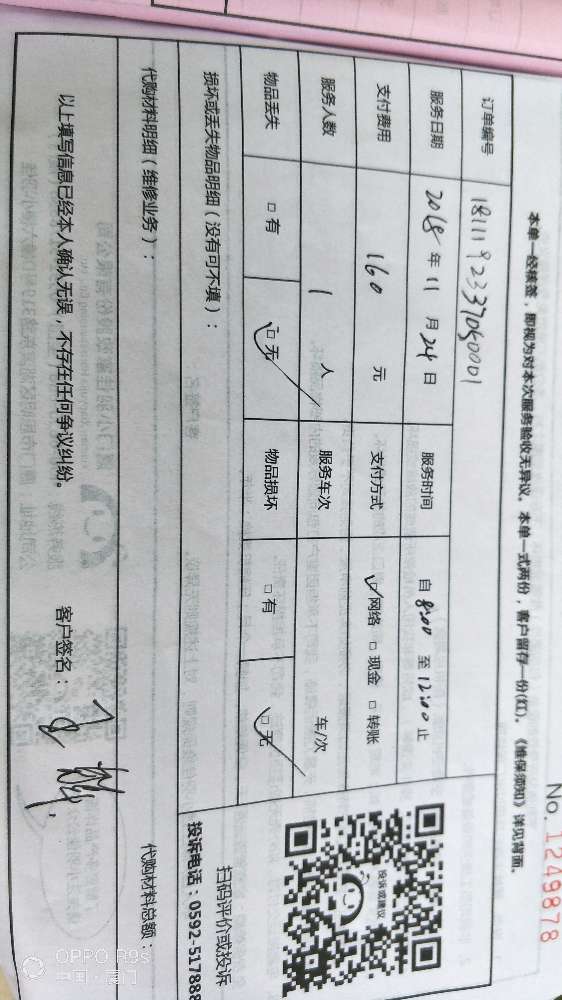 No. 1249878
本单一经核签，即视为对本次服务验收无异议。本单一式两份，客户留存一份(红)。《维保须知》详见背面。
订单编号 1811192337050001
服务日期 2018 年 11 月 24 日 服务时间 自 8:00 至 12:00 止
支付费用 160 元 支付方式 ☑网络 □现金 □转账
服务人数 1 人 服务车次 车/次
物品丢失 □有 ☑无 物品损坏 □有 ☑无
损坏或丢失物品明细（没有可不填）：
投诉或建议
扫码评价或投诉
投诉电话：0592-517888
代购材料明细（维修业务）： 代购材料总额：
以上填写信息已经本人确认无误，不存在任何争议纠纷。 客户签名：
OPPO R9s
中国·厦门